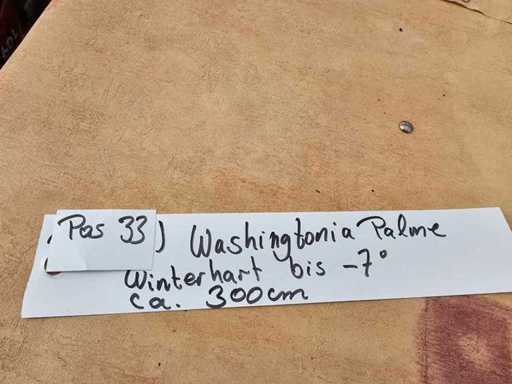 Pos 33 ) Washingtonia Palme
Winterhart bis -7°
ca. 300cm